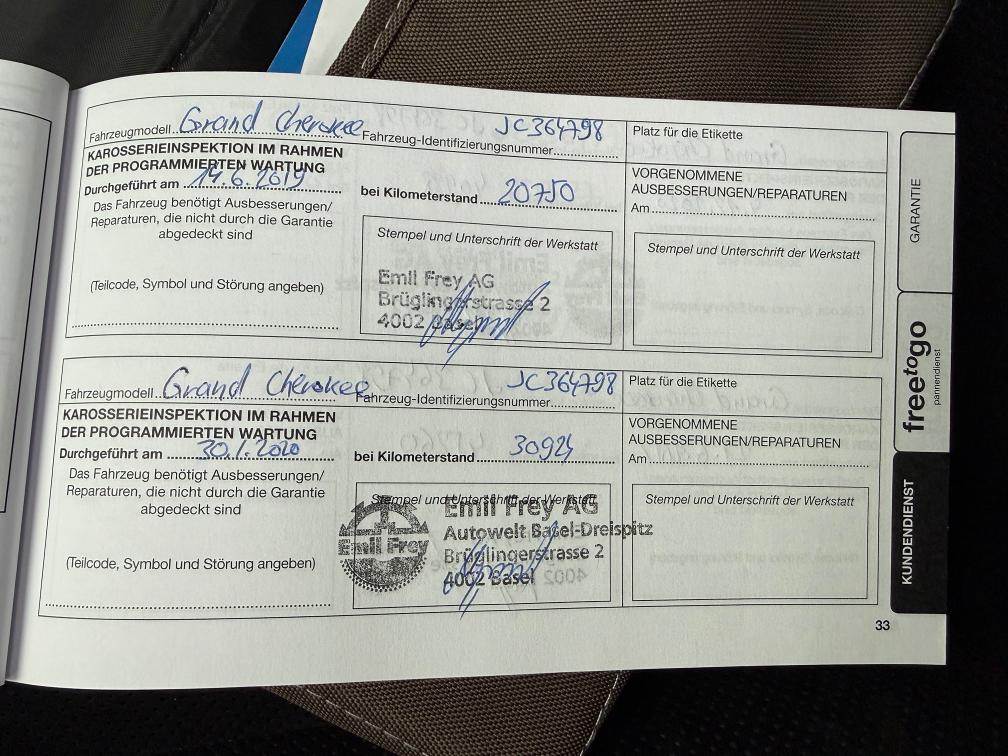 Fahrzeugmodell Grand Cherokee Fahrzeug-Identifizierungsnummer JC364798
KAROSSERIEINSPEKTION IM RAHMEN
DER PROGRAMMIERTEN WARTUNG
Durchgeführt am 14.6.2019 bei Kilometerstand 20750
Das Fahrzeug benötigt Ausbesserungen/
Reparaturen, die nicht durch die Garantie
abgedeckt sind
(Teilcode, Symbol und Störung angeben)
Stempel und Unterschrift der Werkstatt
Emil Frey AG
Brüglingerstrasse 2
4002 Basel
Platz für die Etikette
VORGENOMMENE
AUSBESSERUNGEN/REPARATUREN
Am
Stempel und Unterschrift der Werkstatt
Fahrzeugmodell Grand Cherokee Fahrzeug-Identifizierungsnummer JC364798
KAROSSERIEINSPEKTION IM RAHMEN
DER PROGRAMMIERTEN WARTUNG
Durchgeführt am 30.1.2020 bei Kilometerstand 30924
Das Fahrzeug benötigt Ausbesserungen/
Reparaturen, die nicht durch die Garantie
abgedeckt sind
(Teilcode, Symbol und Störung angeben)
Stempel und Unterschrift der Werkstatt
Emil Frey
Emil Frey AG
Autowelt Basel-Dreispitz
Brüglingerstrasse 2
4002 Basel
Platz für die Etikette
VORGENOMMENE
AUSBESSERUNGEN/REPARATUREN
Am
Stempel und Unterschrift der Werkstatt
GARANTIE
freetogo
pannendienst
KUNDENDIENST
33